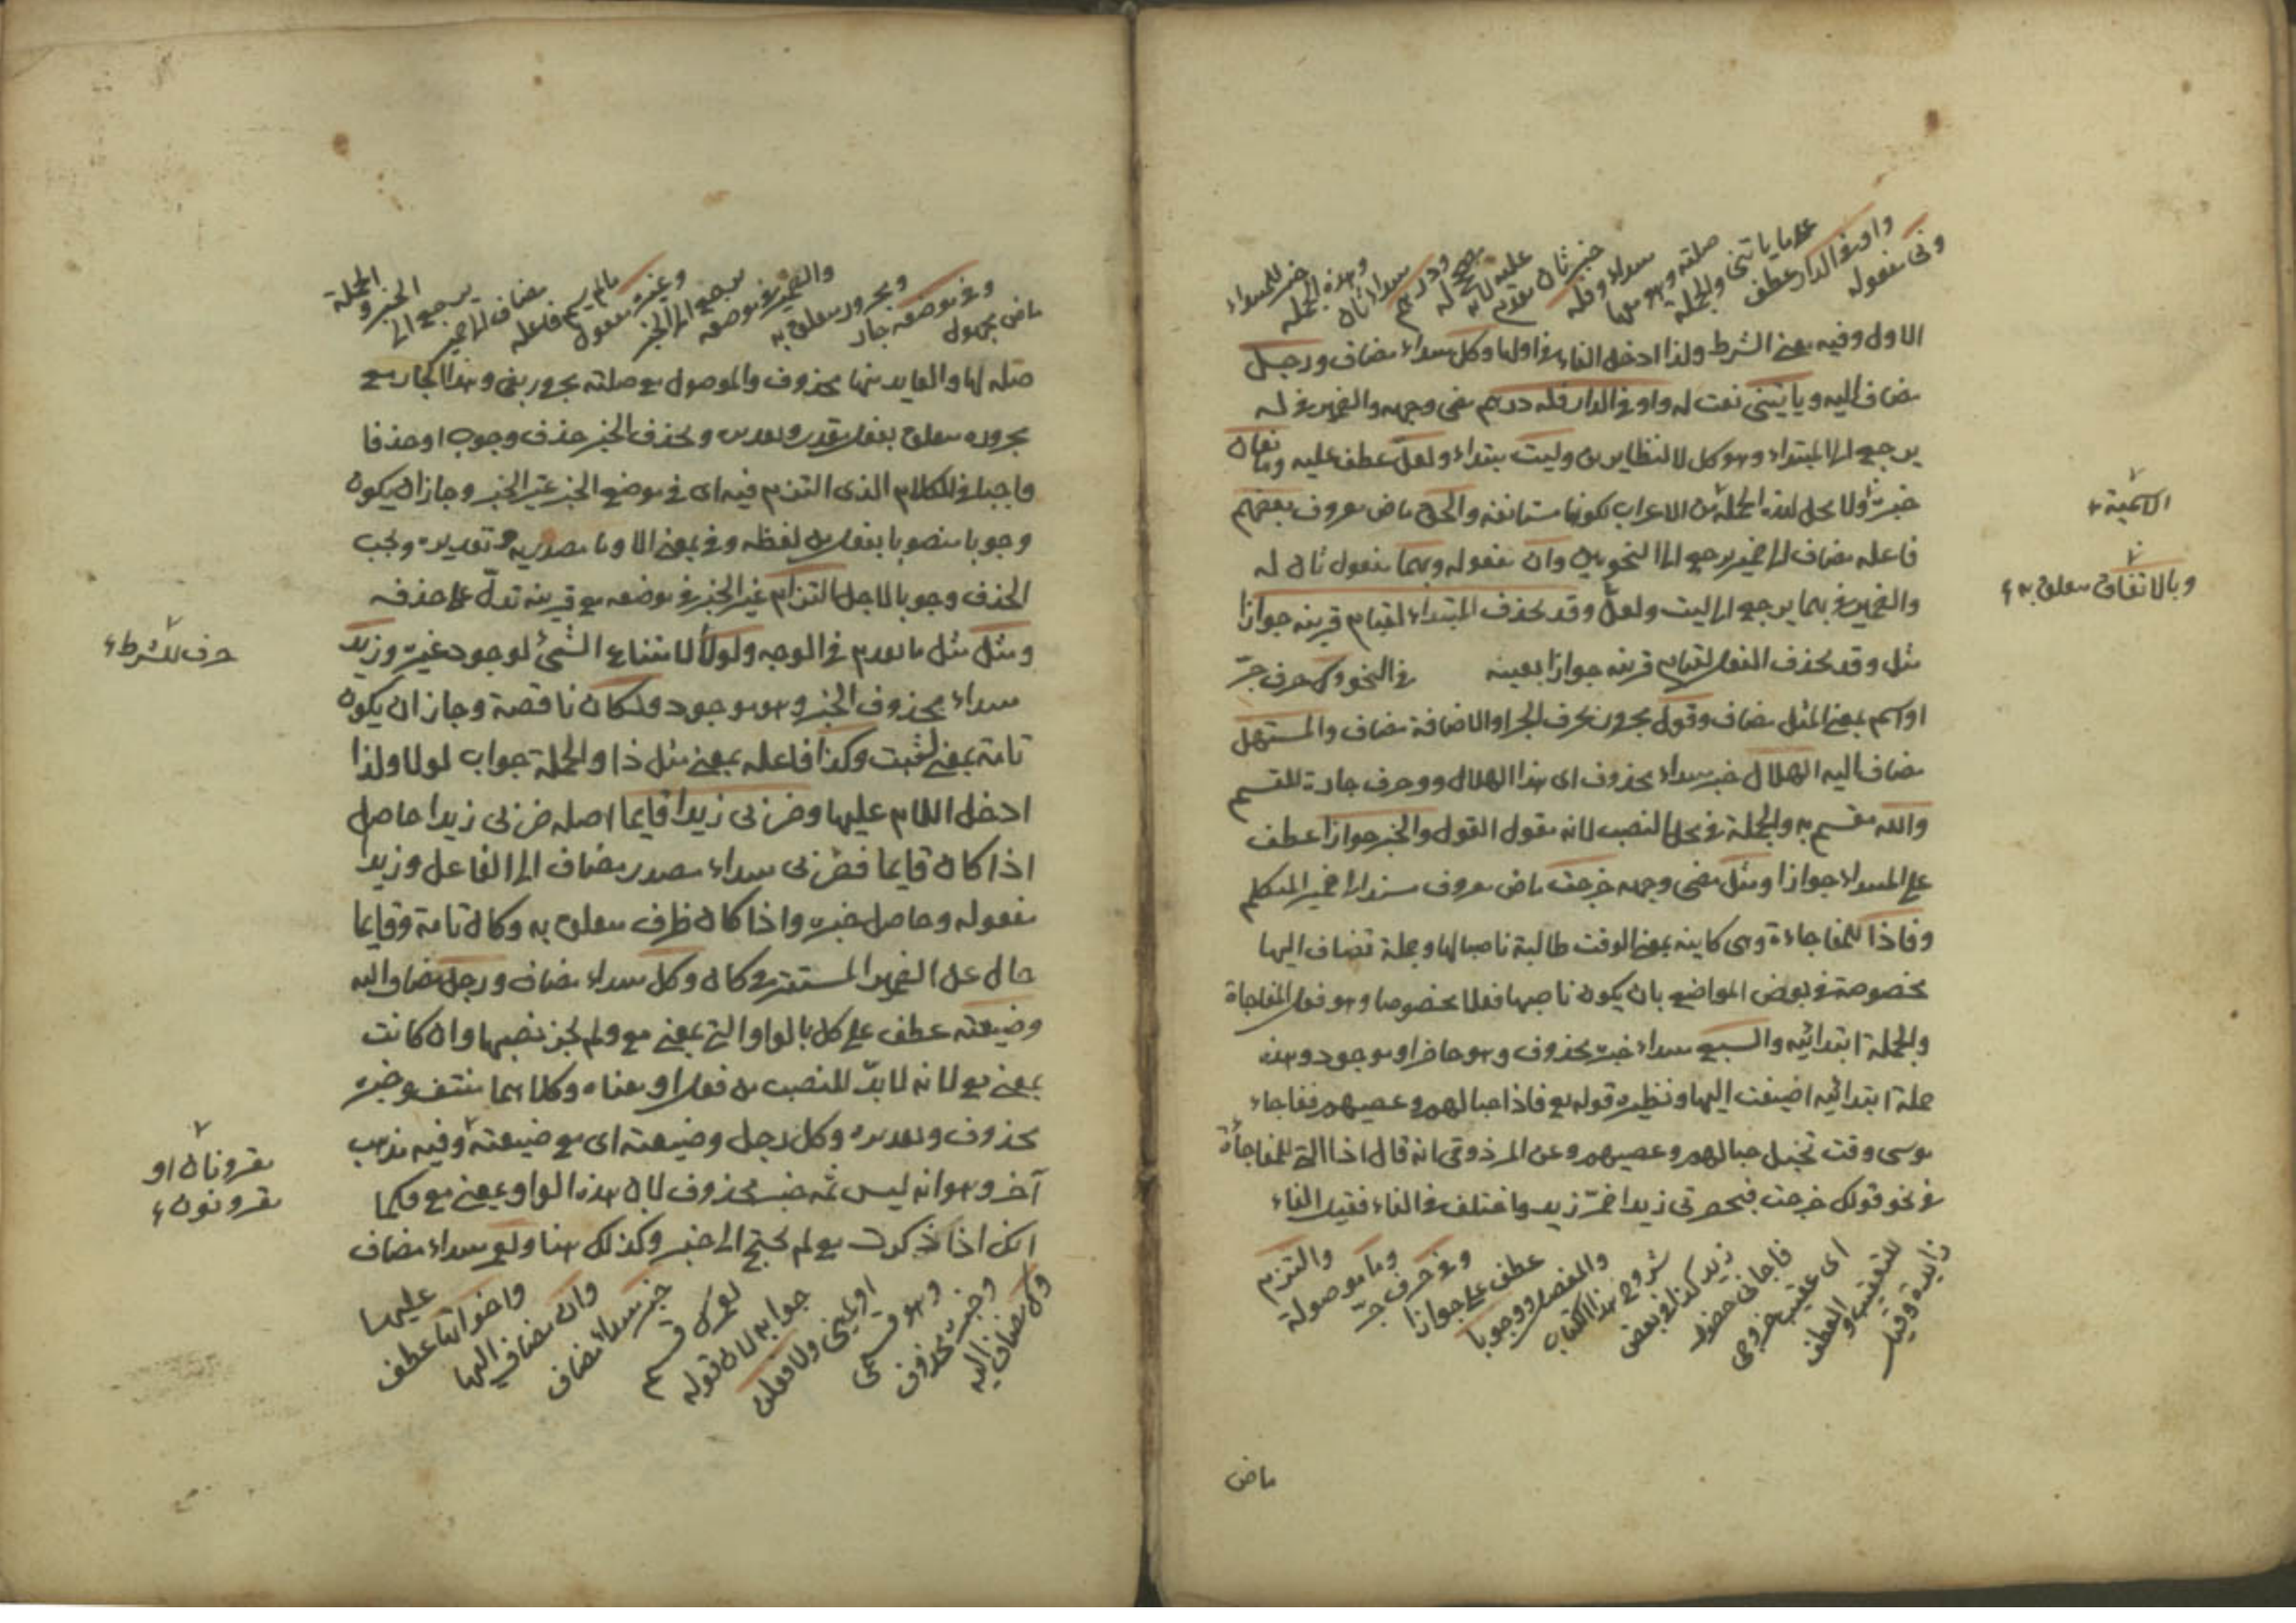 وفي مفعوله
واو في الدار عطف
على ما ياتنى والجملة
صلته وهو مبتداء وفله
خبر ثان مقدم
عليه لانه
ودرهم
مبتداء ثان
وهذه الجملة
خبر للمبتداء
الاول وفيه معنى الشرط ولذا ادخل الفاء في اولها وكل مبتداء مضاف ورجل
مضاف اليه وياتينى نعت له واو في الدار فله درهم مضى وجهه والضمير في له
يرجع الى المبتداء وهو كل لا لنظاير ليت مبتداء ولعل عطف عليه ومانعان
خبره ولا محل لهذه الجملة من الاعراب لكونها مستانفة والحق ماض معروف بعضهم
فاعله مضاف الى ضمير يرجع الى النحويين وان مفعوله وبهما مفعول ثان له
والضمير في بهما يرجع الى ليت ولعل وقد يحذف المبتداء لقيام قرينه جوازا
مثل وقد يحذف الفعل لقيام قرينه جوازا بعينه في النحو وك حرف جر
او اسم بمعنى المثل مضاف وقول مجرور بحرف الجر او الاضافة مضاف والمستهل
مضاف اليه الهلال خبر مبتداء محذوف اى هذا الهلال وو حرف جارة للقسم
والله مقسم به والجملة في محل النصب لانه مقول القول والخبر جوازا عطف
على المبتداء جوازا ومثل مضى وجهه خرجت ماض معروف مسند الى ضمير المتكلم
وفاذا للمفاجاءة وهى كاينه بمعنى الوقت طالبة ناصبا لها وجملة تضاف اليها
مخصوصة في بعض المواضع بان يكون ناصبها فعلا مخصوصا وهو فعل المفاجاة
والجملة ابتدائيه والسبع مبتداء خبره محذوف وهو حاضر او موجود وهذه
جملة ابتدائيه اضيفت اليها ونظيره قوله تع فاذا حبالهم وعصيهم ففاجاء
موسى وقت تخيل حبالهم وعصيهم وعن المرذوقى انه قال اذا التى للمفاجأة
في نحو قولك خرجت فبحضرتى زيد واختلف في الفاء فقيل الفاء
زايدة وقيل
للتعقيب او العطف
اى عقيب خروجى
فاجانى حضور
زيد كذا في بعض
شروح هذا الكتاب
والمفصل ووجوبا
عطف على جوازا
وفي حرف جر
وما موصولة
والتزم
ماض
الاسمية
وبالاتفاق متعلق به
ماض مجهول
وفي موضعه جار
ومجرور متعلق به
والضمير في موضعه
يرجع الى الخبر
وغيره مفعول
ما لم يسم فاعله
مضاف الى ضمير
يرجع الى
الخبر و
الجملة
صله لها والعايد منها محذوف والموصول مع صلته مجرور بفى وهذا الجار مع
مجروره متعلق بفعل مقدر وتقديره ويحذف الخبر حذف وجوب او حذفا
واجبا في الكلام الذى التزم فيه اى في موضع الخبر غير الخبر وجاز ان يكون
وجوبا منصوبا بفعل من لفظه وفي بمعنى الا وما مصدريه وتقديره ويجب
الحذف وجوبا لاجل التزام غير الخبر في موضعه مع قرينه تدل على حذفه
ومثل مثل ما تقدم في الوجه ولولا لامتناع الشئ لوجود غيره وزيد
مبتداء محذوف الخبر وهو موجود ولكان ناقصة وجاز ان يكون
تامة بمعنى لثبت وكذا فاعله بمعنى مثل ذا والجملة جواب لولا ولذا
ادخل اللام عليها وضربى زيدا قايما اصله ضربى زيدا حاصل
اذا كان قايما فضربى مبتداء مصدر مضاف الى الفاعل وزيد
مفعوله وحاصل خبره واذا كان ظرف متعلق به وكان تامة وقايما
حال عن الضمير المستتر في كان وكل مبتداء مضاف ورجل مضاف اليه
وضيعته عطف على كل بالواو التى بمعنى مع ولم يجز نصبها وان كانت
بمعنى مع لانه لا بد للنصب من فعل او معناه وكلاهما منتف وخبره
محذوف وتقديره وكل رجل وضيعته اى مع ضيعته وفيه مذهب
آخر وهو انه ليس ثمه خبر محذوف لان هذه الواو بمعنى مع فكما
انك اذا ذكرت مع لم يحتج الى خبر وكذلك هنا ولعمر مبتداء مضاف
وك مضاف اليه
وخبره محذوف
وهو قسمى
او يمينى ولافعلن
جوابه لان قوله
لعمرك قسم
خبر مبتداء مضاف
وان مضاف اليها
واخواتها عطف
عليها
حرف للشرط
مقرونان او
مقرونون